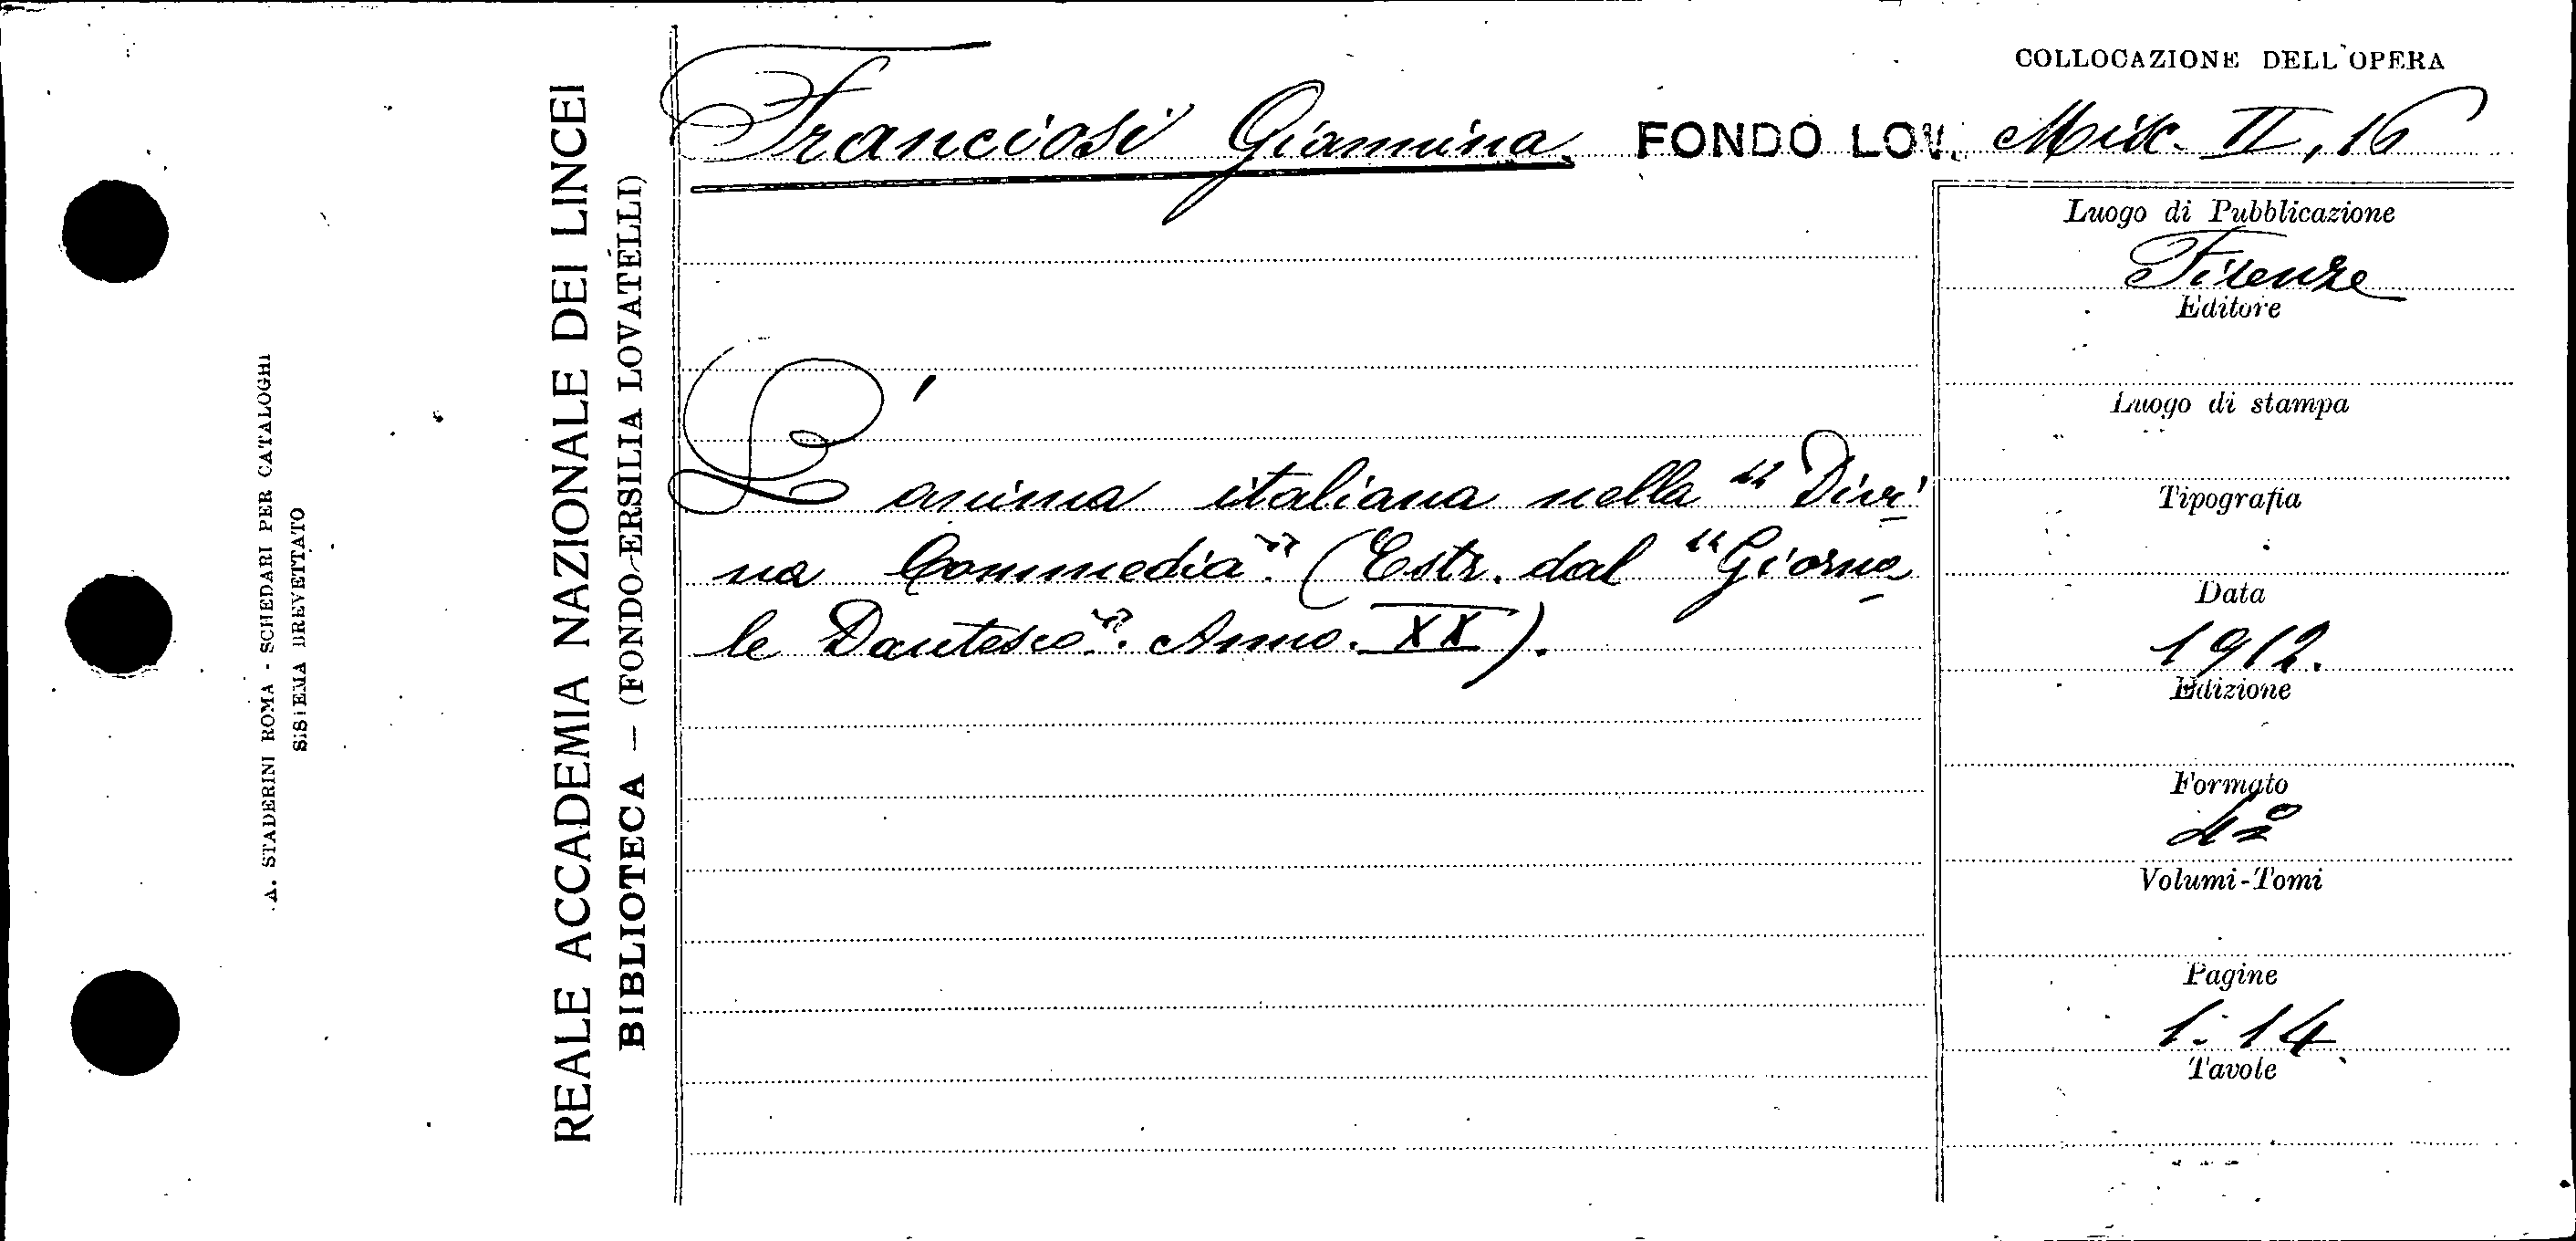 A. STADERINI ROMA - SCHEDARI PER CATALOGHI
SISTEMA BREVETTATO
REALE ACCADEMIA NAZIONALE DEI LINCEI
BIBLIOTECA — (FONDO ERSILIA LOVATELLI)
COLLOCAZIONE DELL'OPERA
Franciosi Giannina. FONDO LOV. Misc. II, 16
L'anima italiana nella "Divi
na Commedia". (Estr. dal "Giorna
le Dantesco". Anno. XX).
Luogo di Pubblicazione
Firenze
Editore
Luogo di stampa
Tipografia
Data
1912.
Edizione
Formato
4º
Volumi-Tomi
Pagine
1-14
Tavole